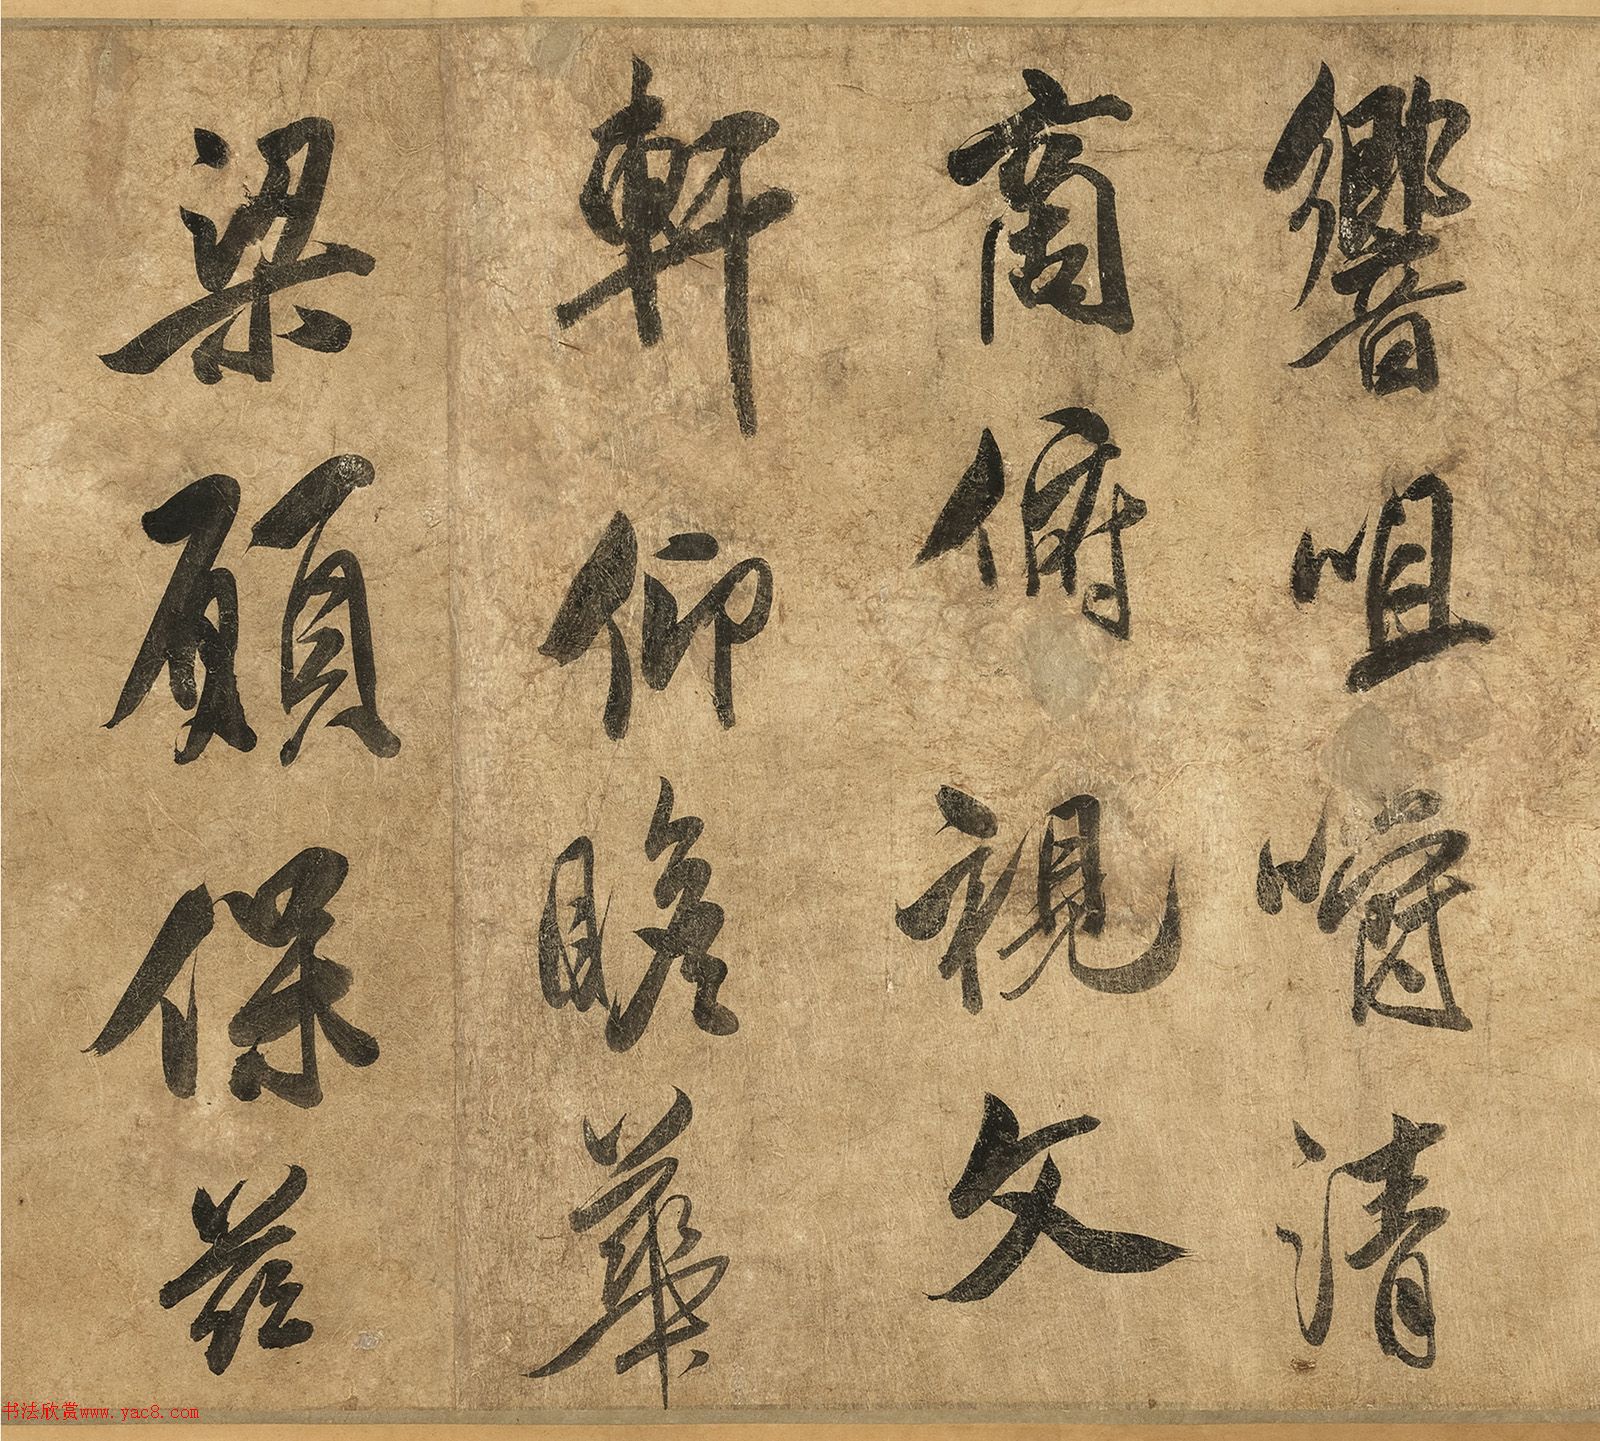 響咀嚼清
商俯視文
軒仰瞻華
梁顧保茲
书法欣赏www.yac8.com